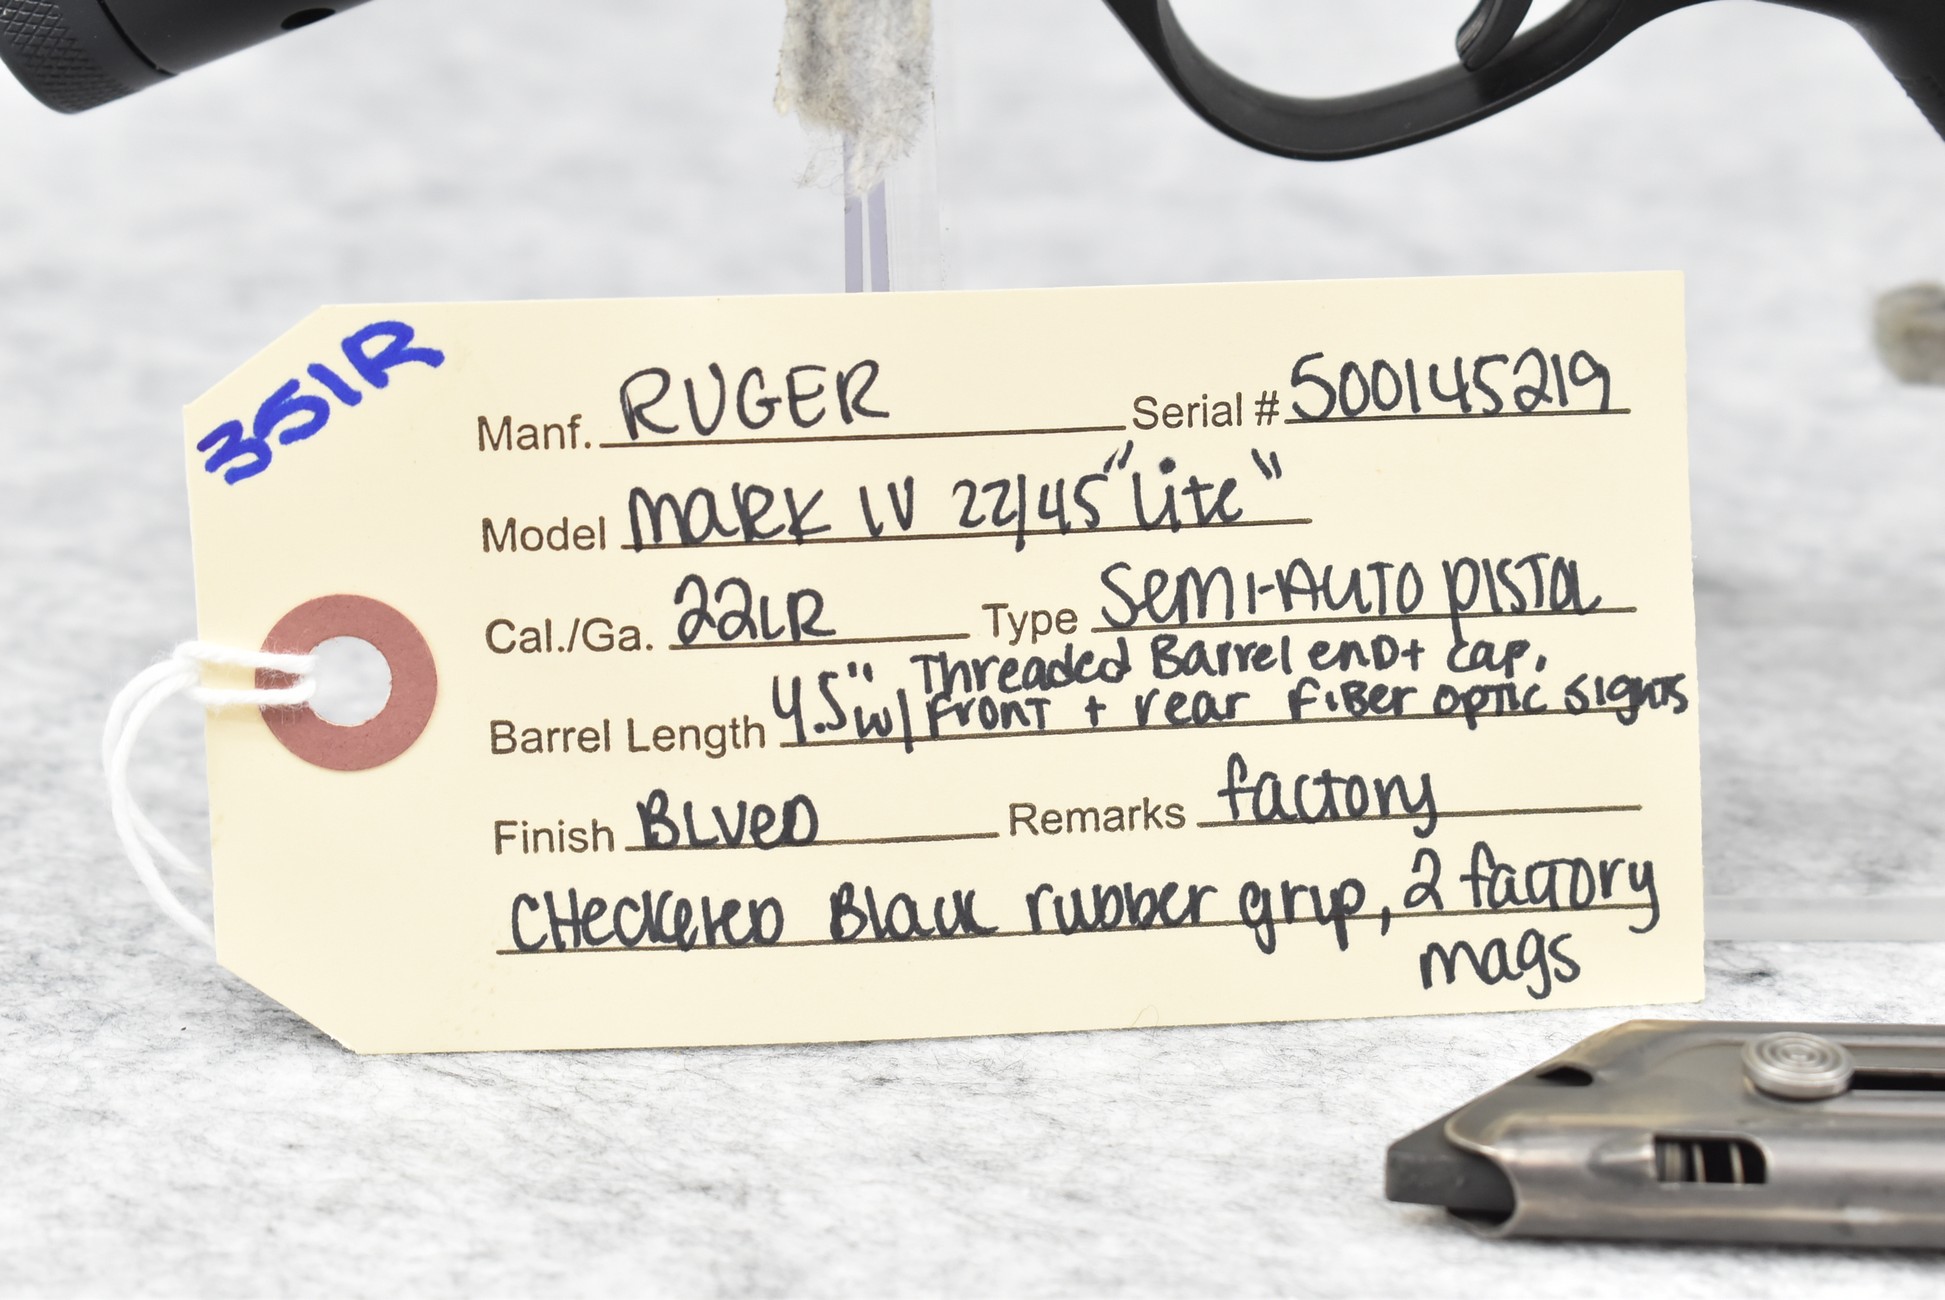 351R
Manf. RUGER Serial # 500145219
Model MARK IV 22/45 "Lite"
Cal./Ga. 22LR Type SEMI-AUTO PISTOL
Threaded Barrel end + cap.
Barrel Length 4.5" w/ front + rear fiber optic sights
Finish BLUED Remarks factory
CHECKERED Black rubber grip, 2 factory
mags